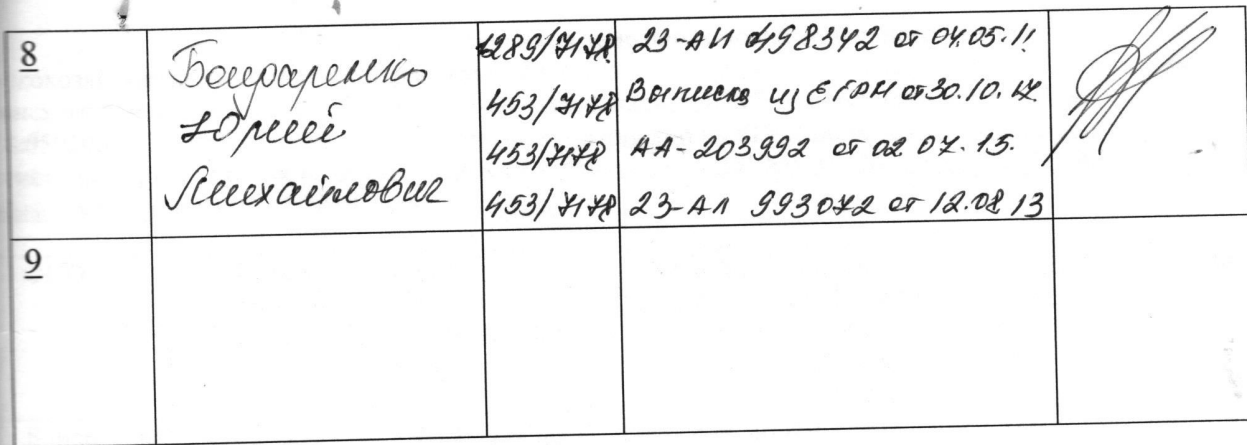 8
Бондаренко
Юрий
Михайлович
1289/7178
453/7178
453/7178
453/7178
23-АИ 498342 от 04.05.11
Выписка из ЕГРН от 30.10.17
АА-203992 от 02 07. 15.
23-АЛ 993072 от 12.08.13
9